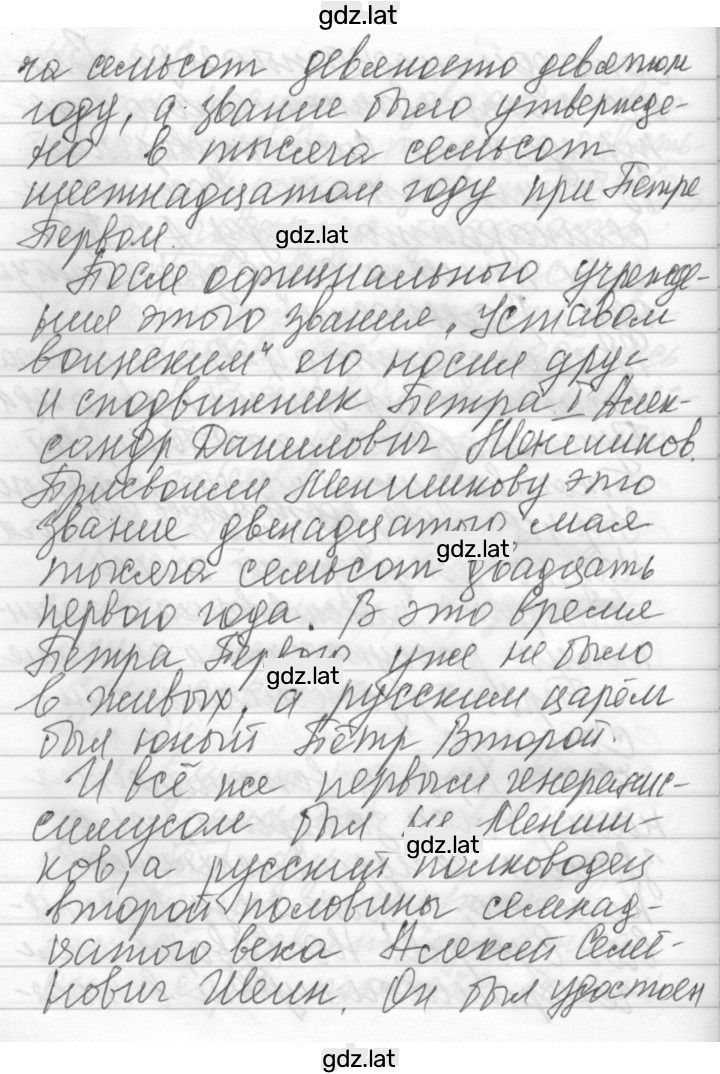 gdz.lat
ча семьсот девяносто девятом
году, а звание было утвержде-
но в тысяча семьсот
шестнадцатом году при Петре
Первом.
gdz.lat
После официального учрежде-
ния этого звания „Уставом
воинским“ его носил друг
и сподвижник Петра I Алек-
сандр Данилович Меншиков.
Присвоили Меншикову это
звание двенадцатого мая
gdz.lat
тысяча семьсот двадцать
первого года. В это время
Петра Первого уже не было
gdz.lat
в живых, а русским царём
был юный Пётр Второй.
И всё же первым генералис-
симусом был не Менши-
gdz.lat
ков, а русский полководец
второй половины семнад-
цатого века Алексей Семё-
нович Шеин. Он был удостоен
gdz.lat